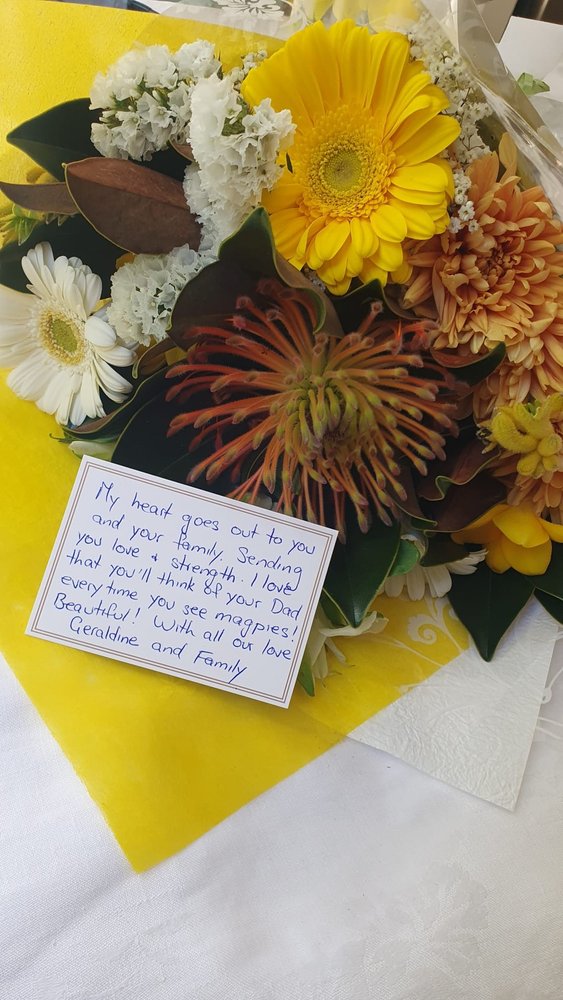 My heart goes out to you
and your family. Sending
you love + strength. I love
that you'll think of your Dad
every time you see magpies!
Beautiful! With all our love
Geraldine and Family